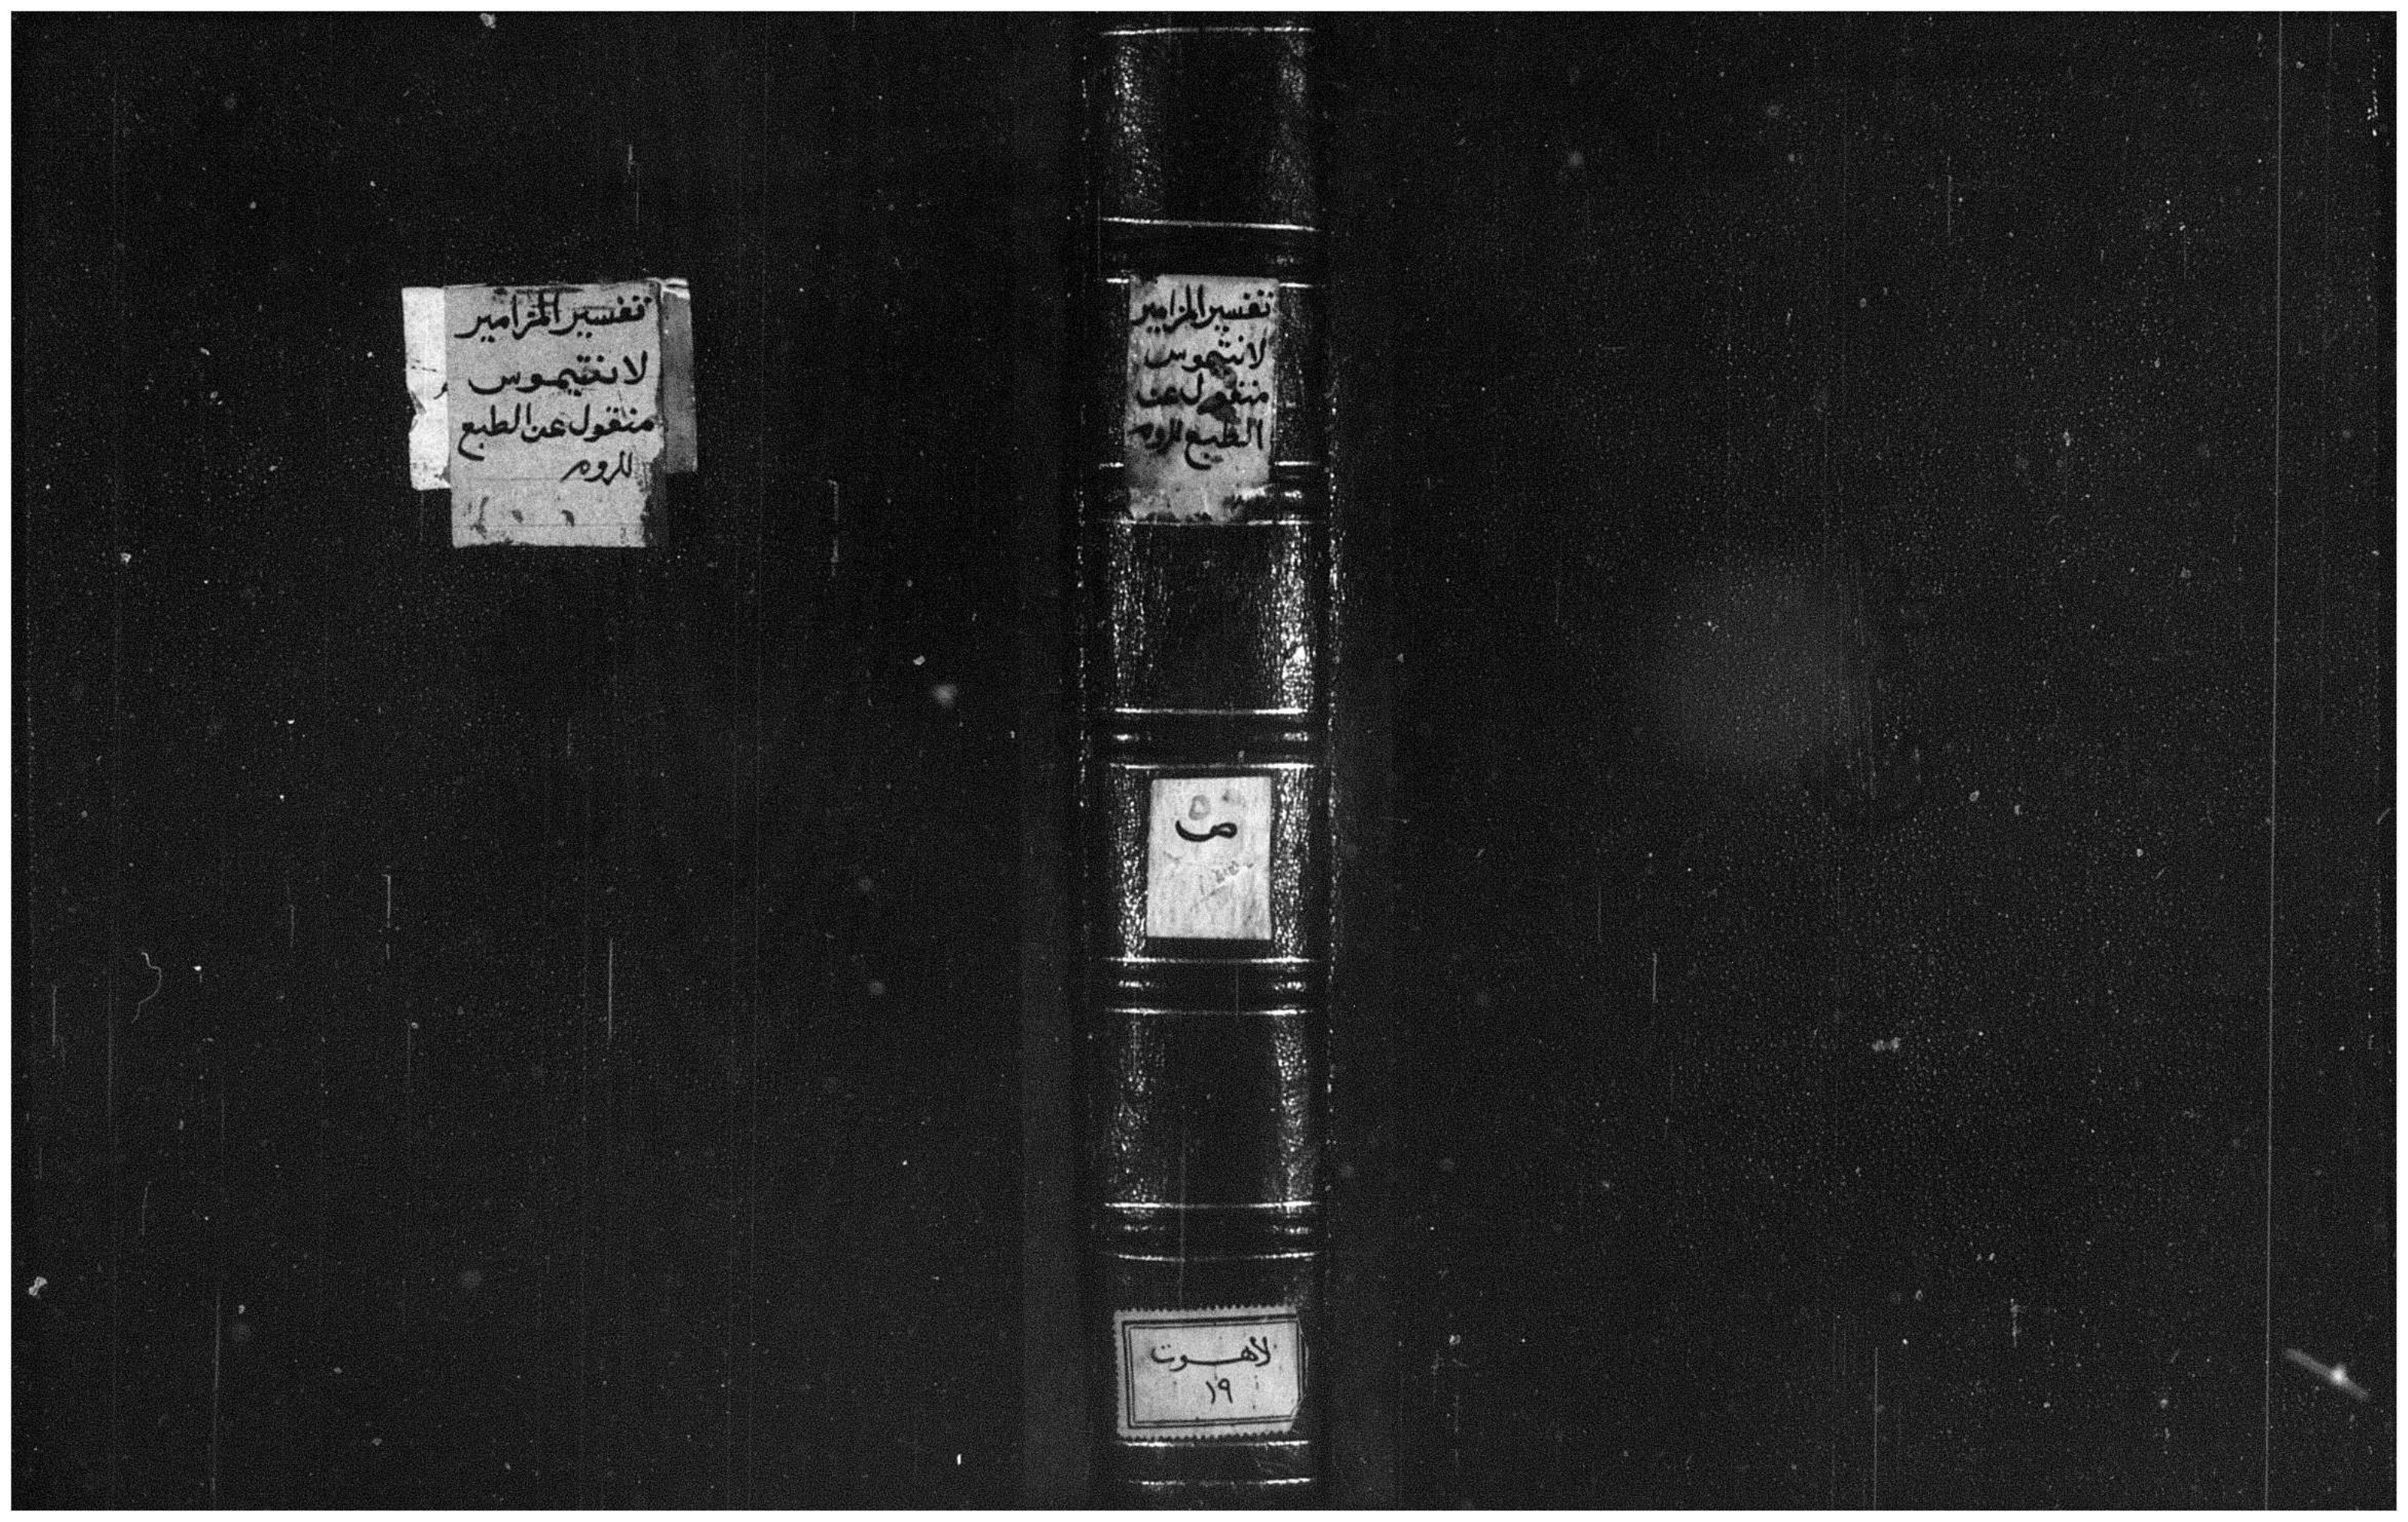 تفسير المزامير
لانتيموس
منقول عن الطبع
للروم
تفسير المزامير
لانتيموس
منقول عن
الطبع للروم
لاهوت
١٩